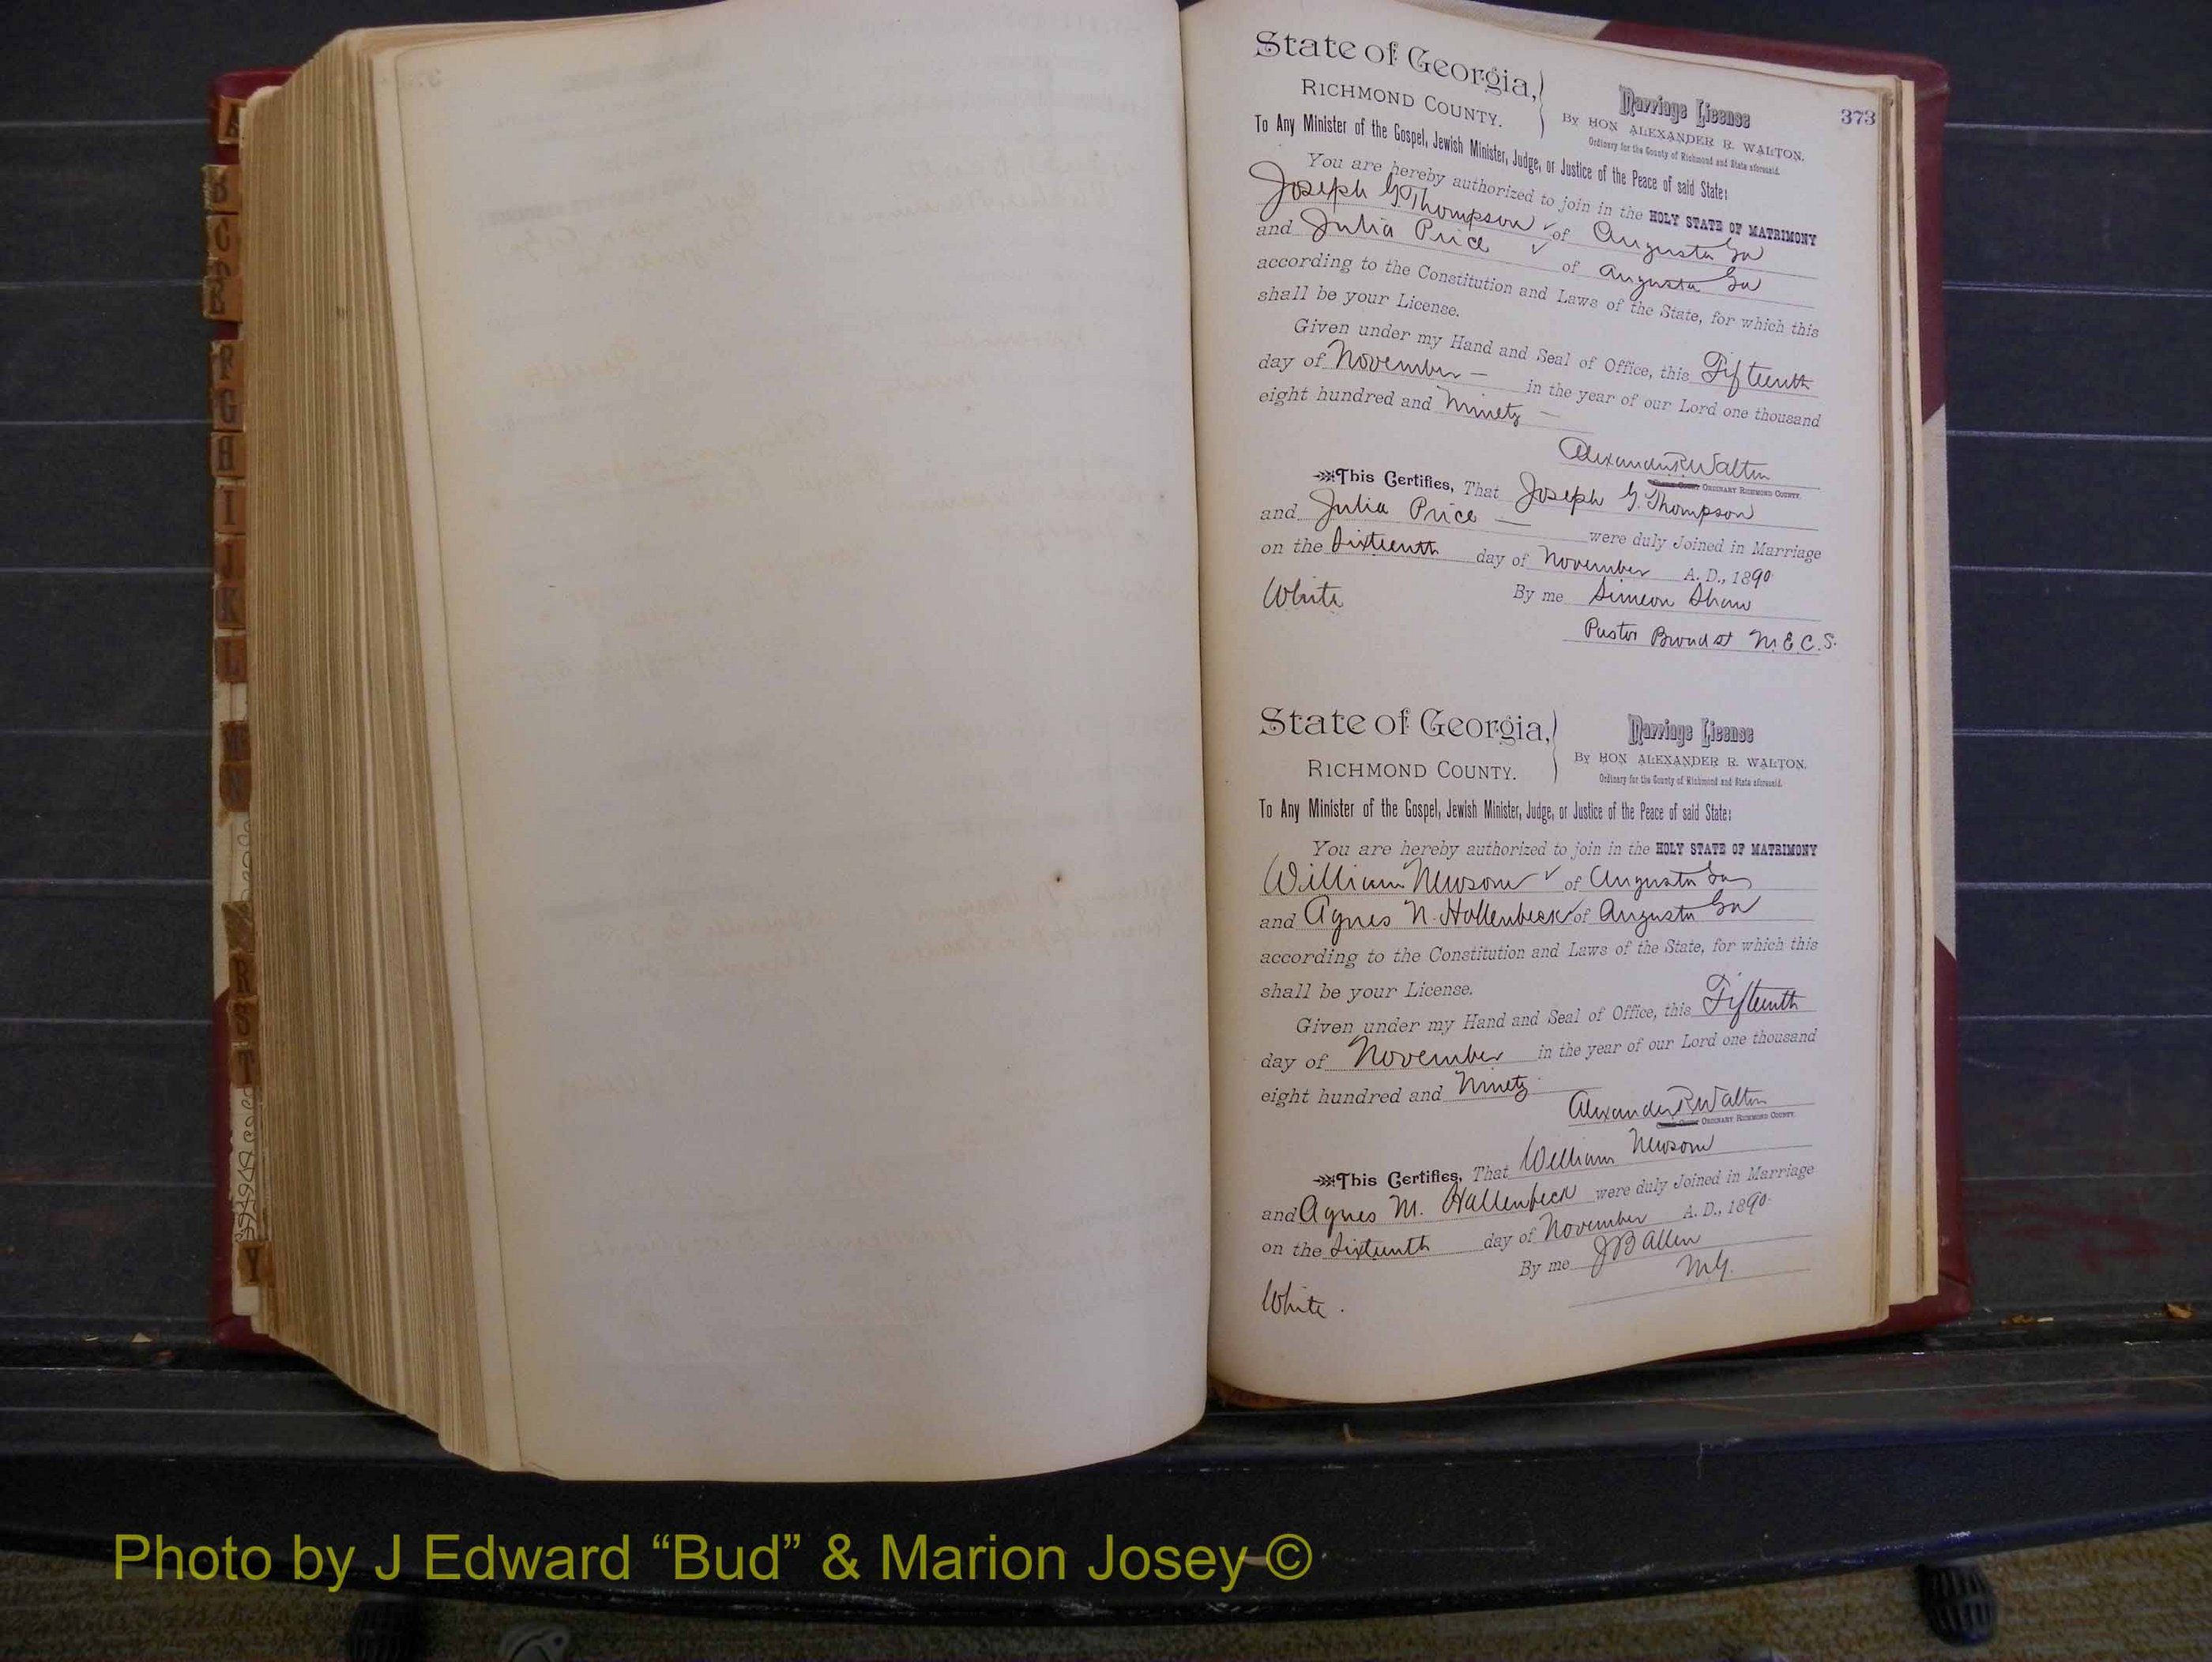 State of Georgia,
RICHMOND COUNTY.
Marriage License
BY HON ALEXANDER R. WALTON,
Ordinary for the County of Richmond and State aforesaid.
373
To Any Minister of the Gospel, Jewish Minister, Judge, or Justice of the Peace of said State:
You are hereby authorized to join in the HOLY STATE OF MATRIMONY
Joseph G. Thompson of Augusta Ga
and Julia Price of Augusta Ga
according to the Constitution and Laws of the State, for which this
shall be your License.
Given under my Hand and Seal of Office, this Fifteenth
day of November — in the year of our Lord one thousand
eight hundred and Ninety —
Alexander R Walton
ORDINARY RICHMOND COUNTY.
This Certifies, That Joseph G. Thompson
and Julia Price — were duly Joined in Marriage
on the Sixteenth day of November A. D., 1890
White By me Simeon Shaw
Pastor Broad st M.E.C.S.
State of Georgia,
RICHMOND COUNTY.
Marriage License
BY HON ALEXANDER R. WALTON,
Ordinary for the County of Richmond and State aforesaid.
To Any Minister of the Gospel, Jewish Minister, Judge, or Justice of the Peace of said State:
You are hereby authorized to join in the HOLY STATE OF MATRIMONY
William Newsom of Augusta Ga
and Agnes N. Hollenbeck of Augusta Ga
according to the Constitution and Laws of the State, for which this
shall be your License.
Given under my Hand and Seal of Office, this Fifteenth
day of November in the year of our Lord one thousand
eight hundred and Ninety
Alexander R Walton
ORDINARY RICHMOND COUNTY.
This Certifies, That William Newsom
and Agnes M. Hallenbeck were duly Joined in Marriage
on the Sixteenth day of November A. D., 1890
By me J B Allen
M.G.
White.
A
B
C
F
G
H
I
J
K
L
N
R
S
T
Y
Photo by J Edward “Bud” & Marion Josey ©